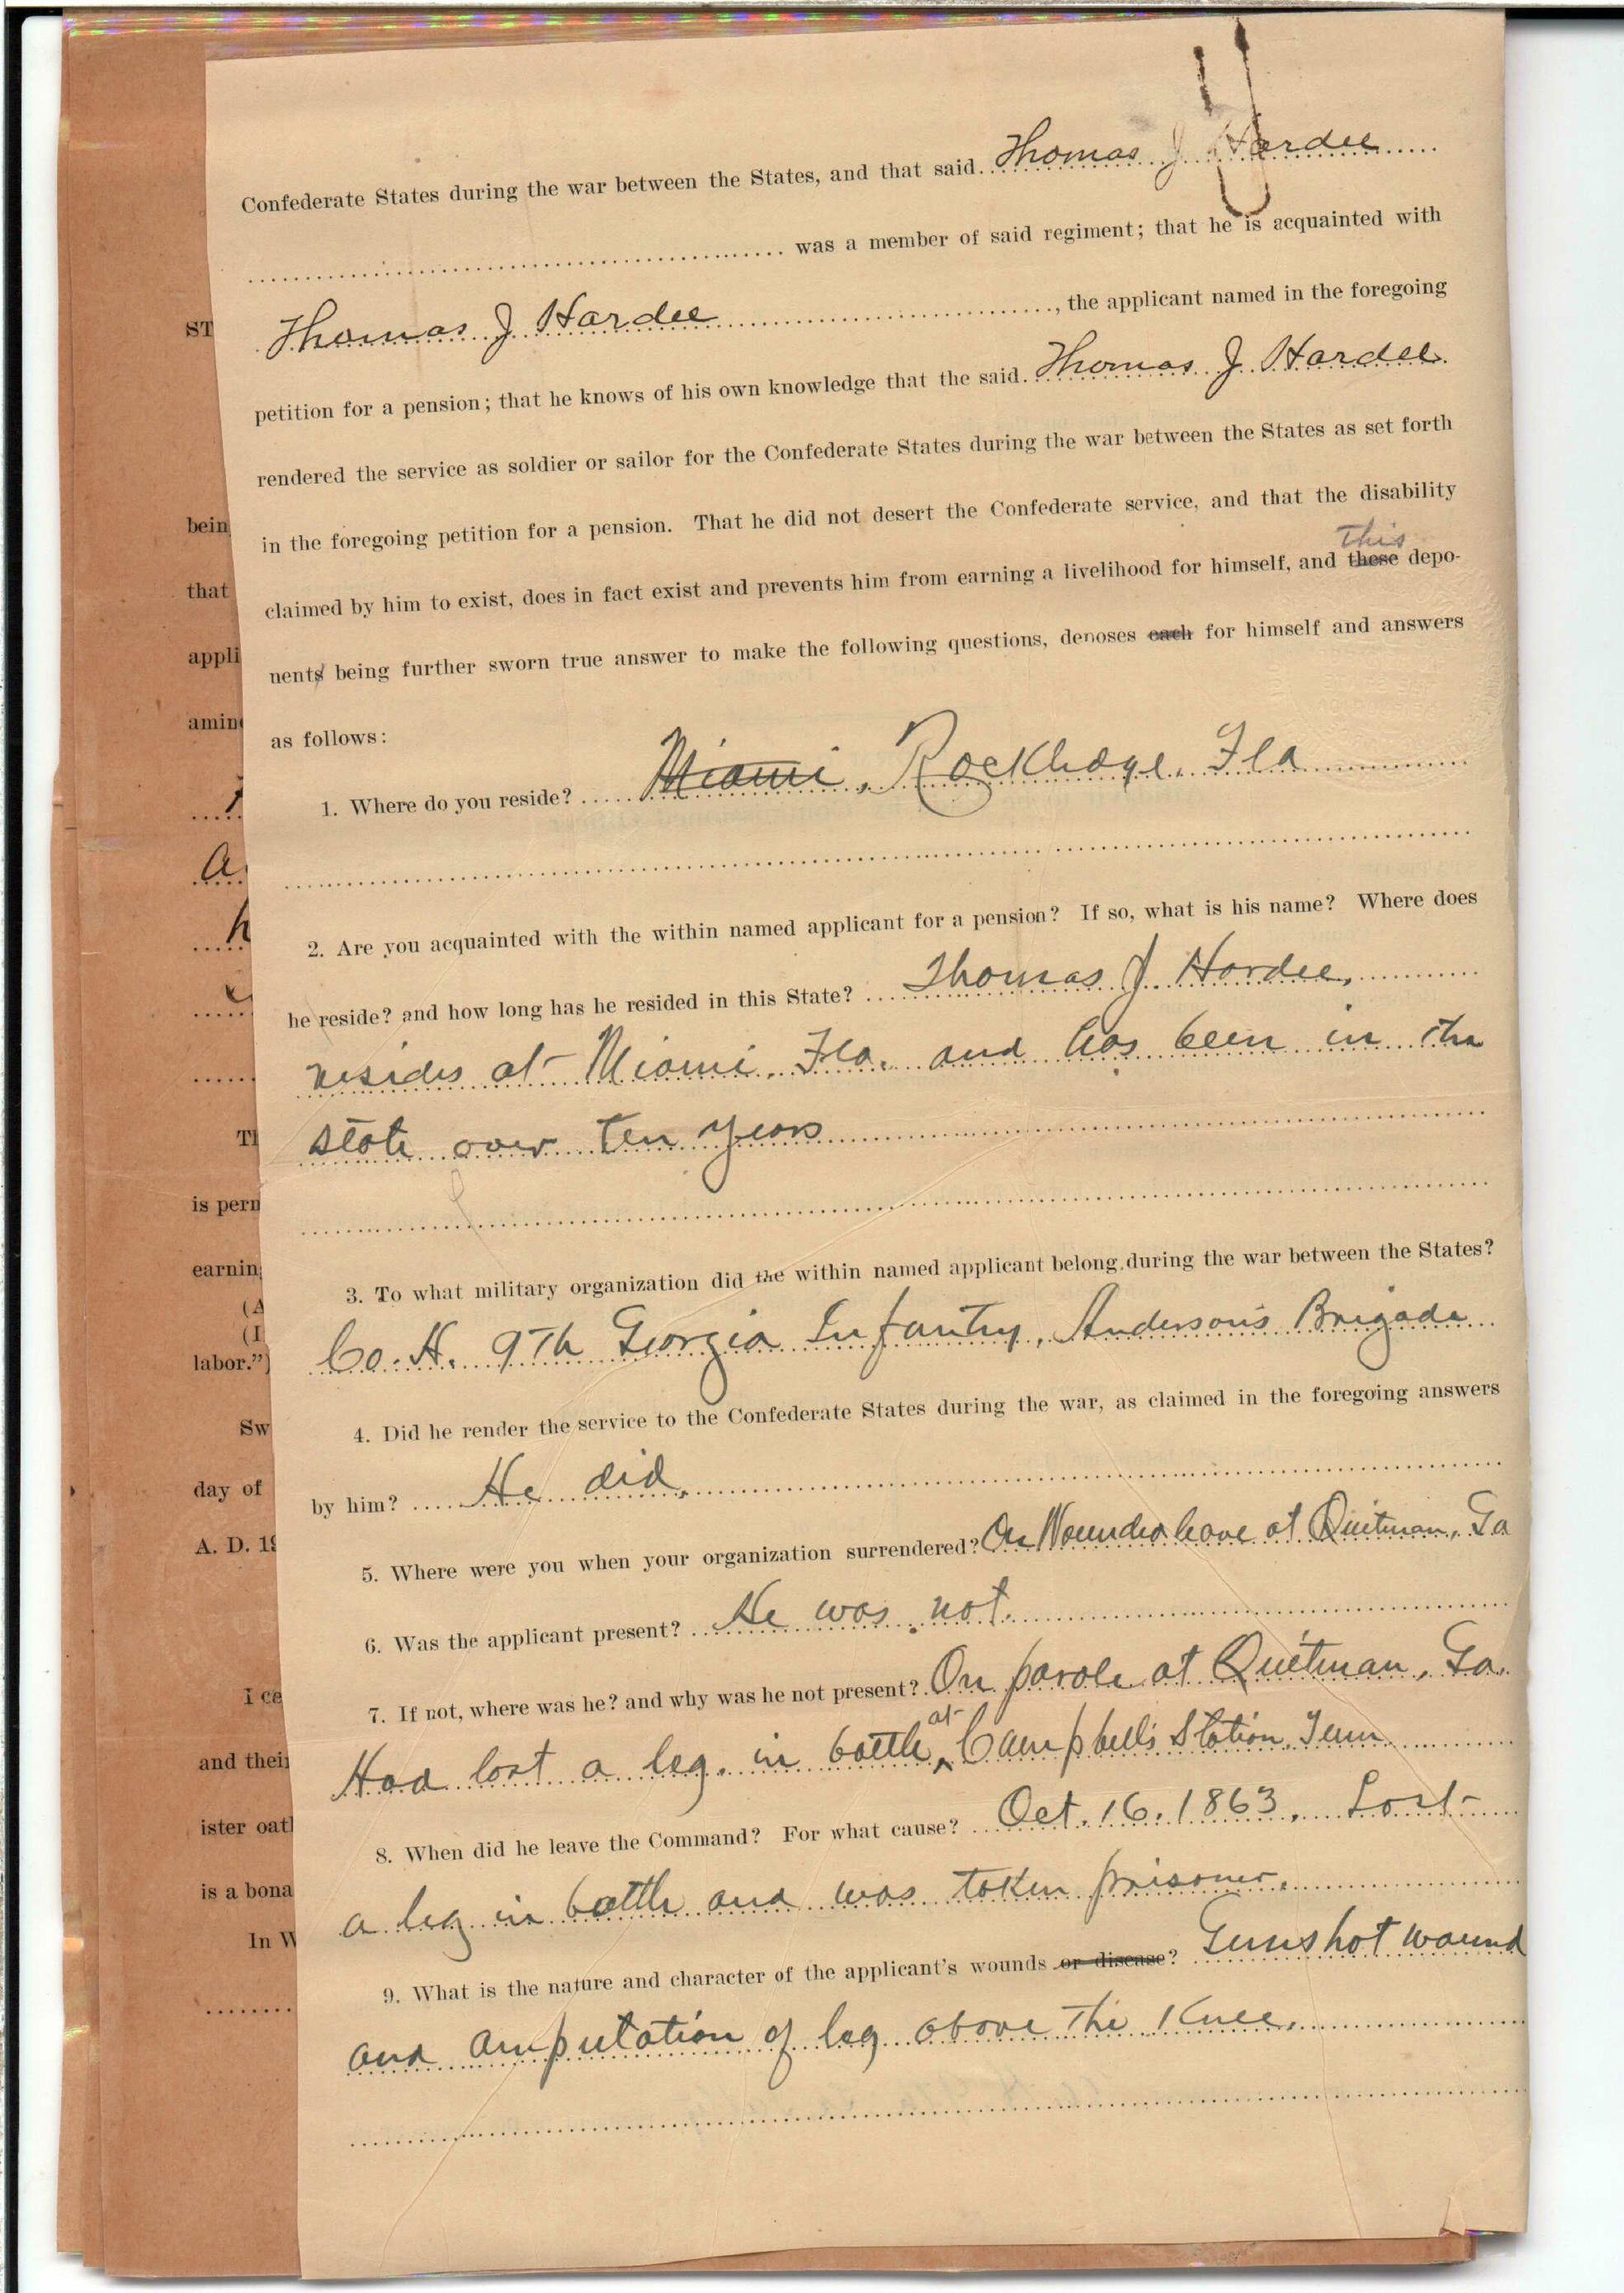 Confederate States during the war between the States, and that said Thomas J Hardee
was a member of said regiment; that he is acquainted with
Thomas J Hardee, the applicant named in the foregoing
petition for a pension; that he knows of his own knowledge that the said Thomas J Hardee
rendered the service as soldier or sailor for the Confederate States during the war between the States as set forth
in the foregoing petition for a pension. That he did not desert the Confederate service, and that the disability
this
claimed by him to exist, does in fact exist and prevents him from earning a livelihood for himself, and these depo-
nents being further sworn true answer to make the following questions, deposes each for himself and answers
as follows:
1. Where do you reside? Miami, Rockledge, Fla
2. Are you acquainted with the within named applicant for a pension? If so, what is his name? Where does
he reside? and how long has he resided in this State? Thomas J. Hardee,
resides at Miami, Fla. and has been in the
state over ten years
3. To what military organization did the within named applicant belong during the war between the States?
Co. H. 9th Georgia Infantry, Anderson's Brigade
4. Did he render the service to the Confederate States during the war, as claimed in the foregoing answers
by him? He did.
5. Where were you when your organization surrendered? On Wounded leave at Quitman, Ga
6. Was the applicant present? He was not.
7. If not, where was he? and why was he not present? On parole at Quitman, Ga.
Had lost a leg. in battle at Campbell's Station, Tenn
8. When did he leave the Command? For what cause? Oct. 16. 1863. Lost
a leg in battle and was taken prisoner.
9. What is the nature and character of the applicant's wounds or disease? Gunshot wound
and amputation of leg above the Knee.
ST
bein
that
appli
amin
a
h
is pern
earnin
labor.")
Sw
day of
A. D. 19
I ce
and thei
ister oat
is a bona
In W